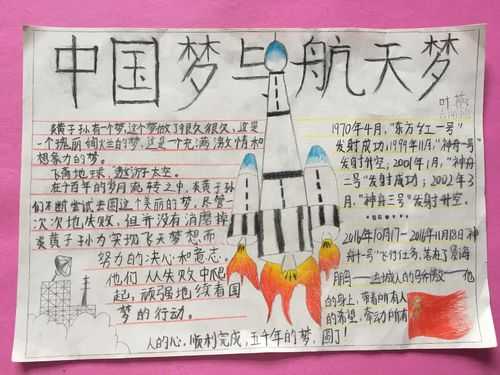 中国梦与航天梦
叶
炎黄子孙有个梦，这个梦做了很久很久，这是
一个瑰丽绚烂的梦，这是一个充满激情和
想象力的梦。
飞离地球，遨游太空。
在千百年的岁月流转之中，炎黄子孙
们不断尝试去圆这个美丽的梦，尽管一
次次地失败，但并没有消磨掉
炎黄子孙为实现飞天梦想而
努力的决心和意志。
他们从失败中爬
起，顽强地续着国
梦的行动。
1970年4月，"东方红一号"
发射成功；1999年11月，"神舟一号"
发射升空；2001年1月，"神舟
二号"发射成功；2002年3
月，"神舟三号"发射升空。
2016年10月17—2016年11月18日"神
舟十一号"飞行任务，
他
的身上，带着所有人
的希望，牵动所有
人的心，顺利完成，五千年的梦，圆了！